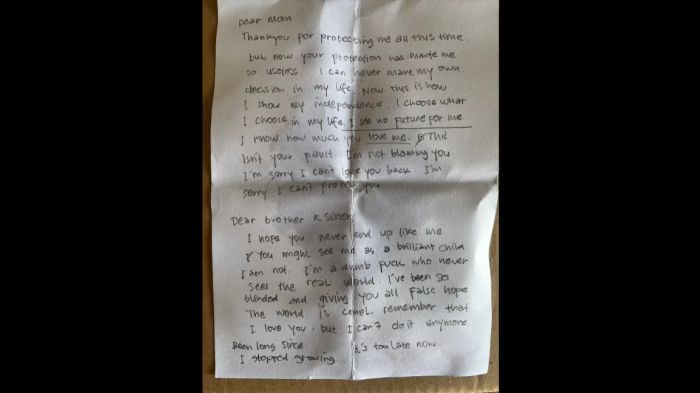 Dear Mom
Thankyou for protecting me all this time.
but now your protection has made me
so useless. I can never make my own
decision in my life. Now this is how
I show my independence. I choose what
I choose in my life. I see no future for me
I know how much you love me. This
isn't your fault. I'm not blaming you
I'm sorry I can't love you back. I'm
sorry I can't protect you
Dear brother & sister
I hope you never end up like me
You might see me as a brilliant child
I am not. I'm a dumb fuck who never
sees the real world. I've been so
blinded and giving you all false hope
The world is cruel. remember that
I love you. but I can't do it anymore
Been long since
I stopped growing
it's too late now